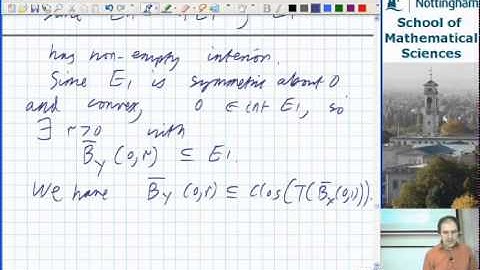 has non-empty interior.
Since E₁ is symmetric about 0
and convex, 0 ∈ int E₁, so
∃ r>0 with
B̄_Y (0,r) ⊆ E₁.
We have B̄_Y (0,r) ⊆ clos(T(B̄_X(0,1))).
Nottingham
School of
Mathematical
Sciences